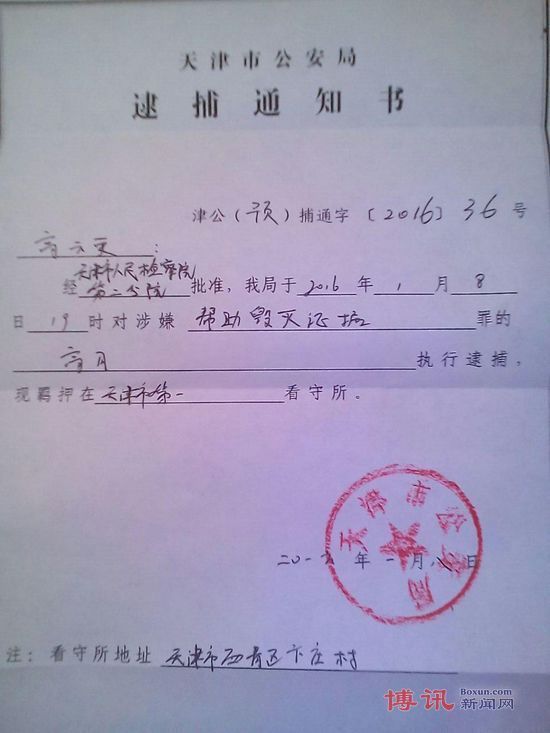 天津市公安局
逮捕通知书
津公（预）捕通字〔2016〕36号
高
：
天津市人民检察院
经第二分院批准，我局于2016年1月8
日19时对涉嫌帮助毁灭证据罪的
高月执行逮捕，
现羁押在天津市第一看守所。
天津市公安局
二〇一六年一月八日
注：看守所地址天津市西青区卞庄村
博讯 Boxun.com
新闻网